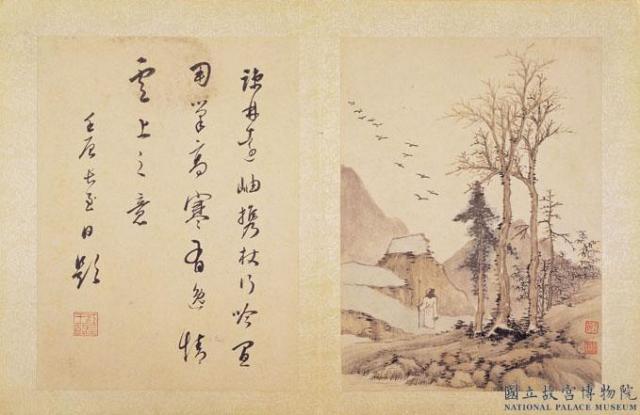 疎林遠岫攜杖行吟
用筆高寒有逸情
雲上之意
壬辰長至日題
國立故宮博物院
NATIONAL PALACE MUSEUM